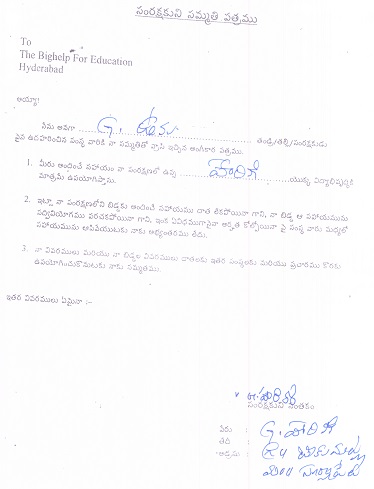 సంరక్షకుని సమ్మతి పత్రము
To
The Bighelp For Education
Hyderabad
అయ్యా!
నేను అనగా G. ఉమ తండ్రి/తల్లి/సంరక్షకుడు
పైన ఉదహరించిన సంస్థ వారికి నా సమ్మతితో వ్రాసి ఇచ్చిన అంగీకార పత్రము.
1. మీరు అందించే సహాయం నా సంరక్షణలో ఉన్న హారిక యొక్క విద్యాభివృద్ధికి
మాత్రమే ఉపయోగిస్తాను.
2. ఇట్లా నా సంరక్షణలోని బిడ్డకు అందించే సహాయము దాత లేకపోయినా గాని, నా బిడ్డ ఆ సహాయమును
సద్వినియోగము పరచకపోయినా గాని, ఇంక ఏవిధముగానైనా అర్హత కోల్పోయినా పై సంస్థ వారు మధ్యలో
సహాయమును ఆపివేయుటకు నాకు అభ్యంతరము లేదు.
3. నా వివరములు మరియు నా బిడ్డల వివరములు దాతలకు ఇతర సంస్థలకు మరియు ప్రచారము కొరకు
ఉపయోగించుకొనుటకు నాకు సమ్మతము.
ఇతర వివరములు ఏమైనా :-
సంరక్షకుని సంతకం
పేరు : G. హారిక
తేది :
అడ్రసు :